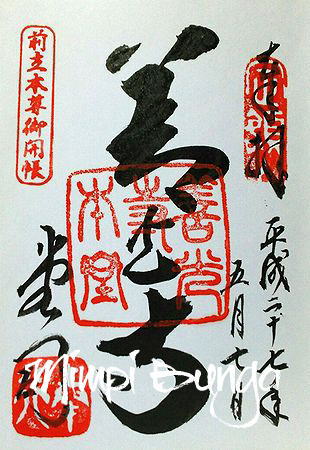 奉拝
平成二十七年
五月七日
善光寺
善光寺本堂
前立本尊御開帳
堂司
Mimpi Bunga